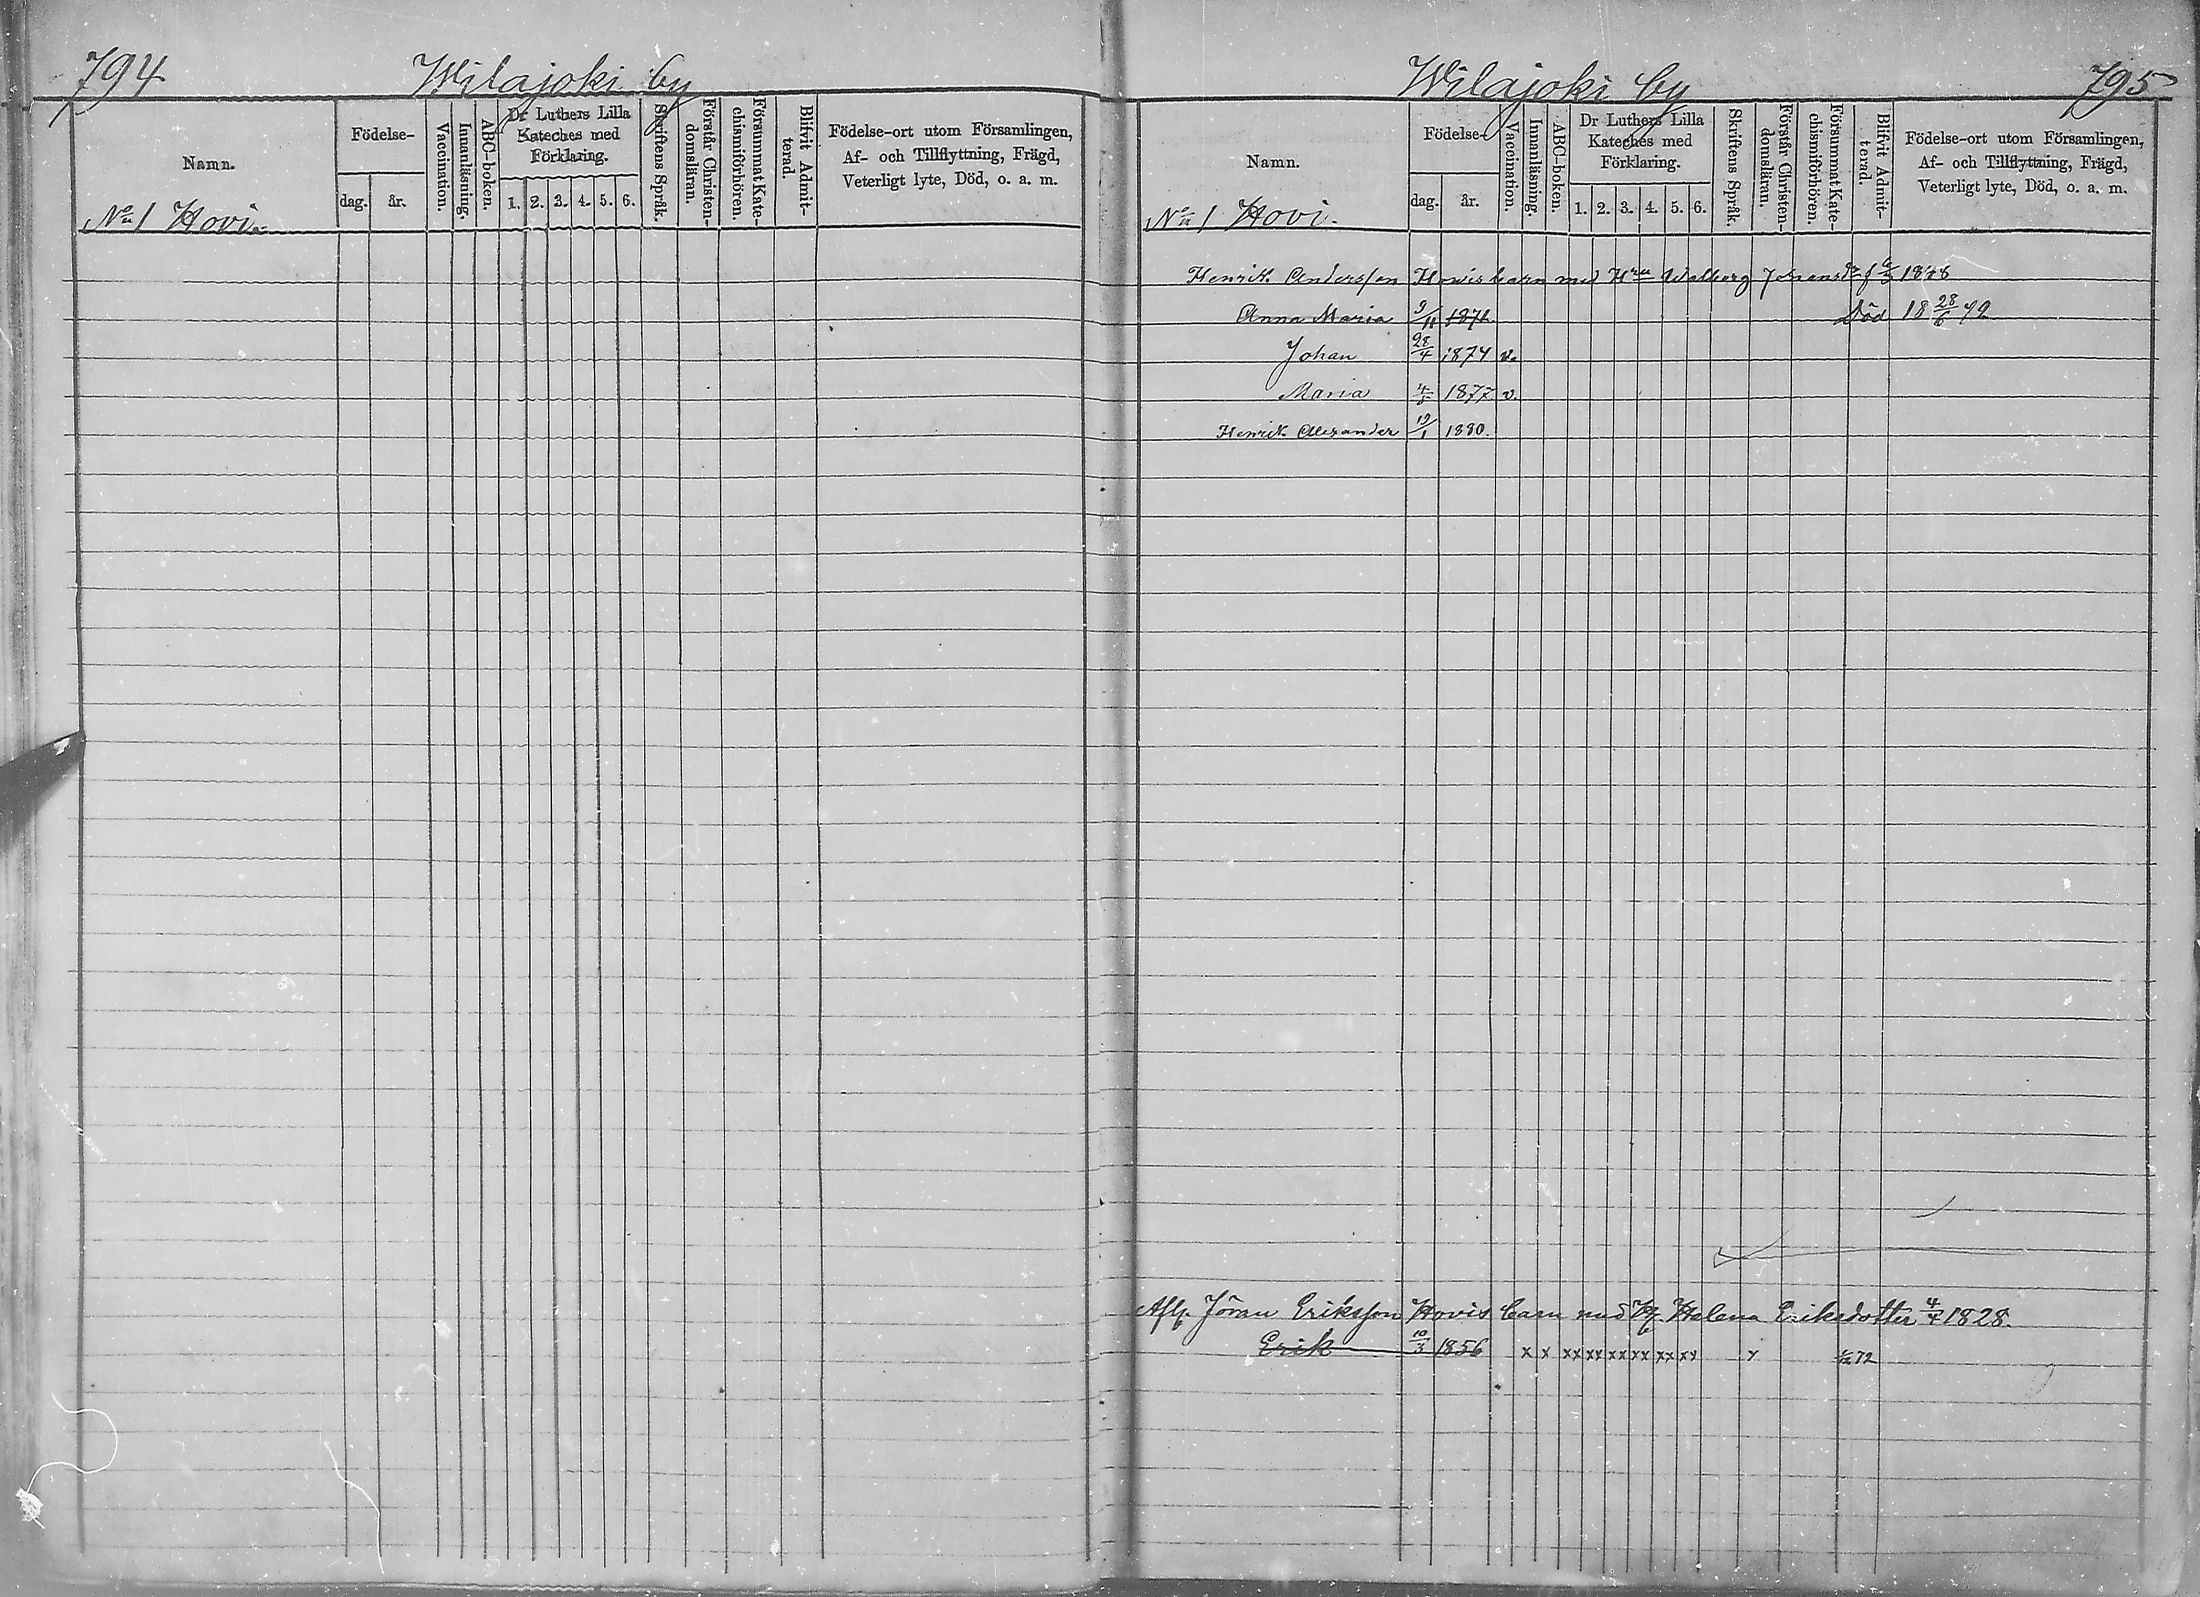 794
Wilajoki by
Namn.
Födelse-
dag.
år.
Vaccination.
Innanläsning.
ABC-boken.
Dr Luthers Lilla
Kateches med
Förklaring.
1. 2. 3. 4. 5. 6.
Skriftens Språk.
Förstår Christen-
domsläran.
Försummat Kate-
chismiförhören.
Blifvit Admit-
terad.
Födelse-ort utom Församlingen,
Af- och Tillflyttning, Frägd,
Veterligt lyte, Död, o. a. m.
No 1 Hovi.
Wilajoki by
795
Namn.
Födelse-
dag.
år.
Vaccination.
Innanläsning.
ABC-boken.
Dr Luthers Lilla
Kateches med
Förklaring.
1. 2. 3. 4. 5. 6.
Skriftens Språk.
Förstår Christen-
domsläran.
Försummat Kate-
chismiförhören.
Blifvit Admit-
terad.
Födelse-ort utom Församlingen,
Af- och Tillflyttning, Frägd,
Veterligt lyte, Död, o. a. m.
No 1 Hovi.
Henrik Andersson Hovis barn med Hru Walborg
Anna Maria 9/11 1871 Död 18 28/6 72
Johan 28/4 1874 v.
Maria 1877 v.
Henrik Alexander 19/1 1880.
Afl. Jöran Eriksson Hovis barn med H. Helena Eriksdotter 4/4 1828.
Erik 10/3 1856 x x xx xx xx xx xx xx 72